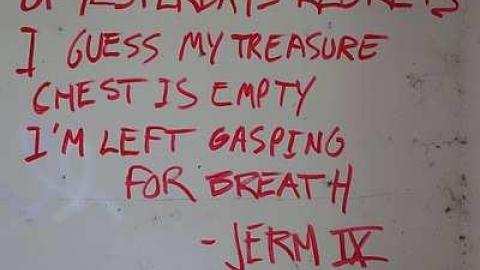 OF YESTERDAYS REGRETS
I GUESS MY TREASURE
CHEST IS EMPTY
I'M LEFT GASPING
FOR BREATH
- JERM IX